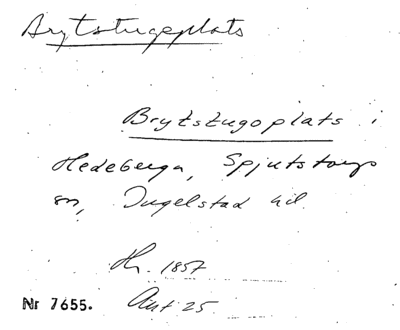 Brytstugeplats
Brytstugoplats i
Hedeberga, Spjutstorps
sn, Ingelstad hd.
Hr. 1857
Nr 7655. Ant 25